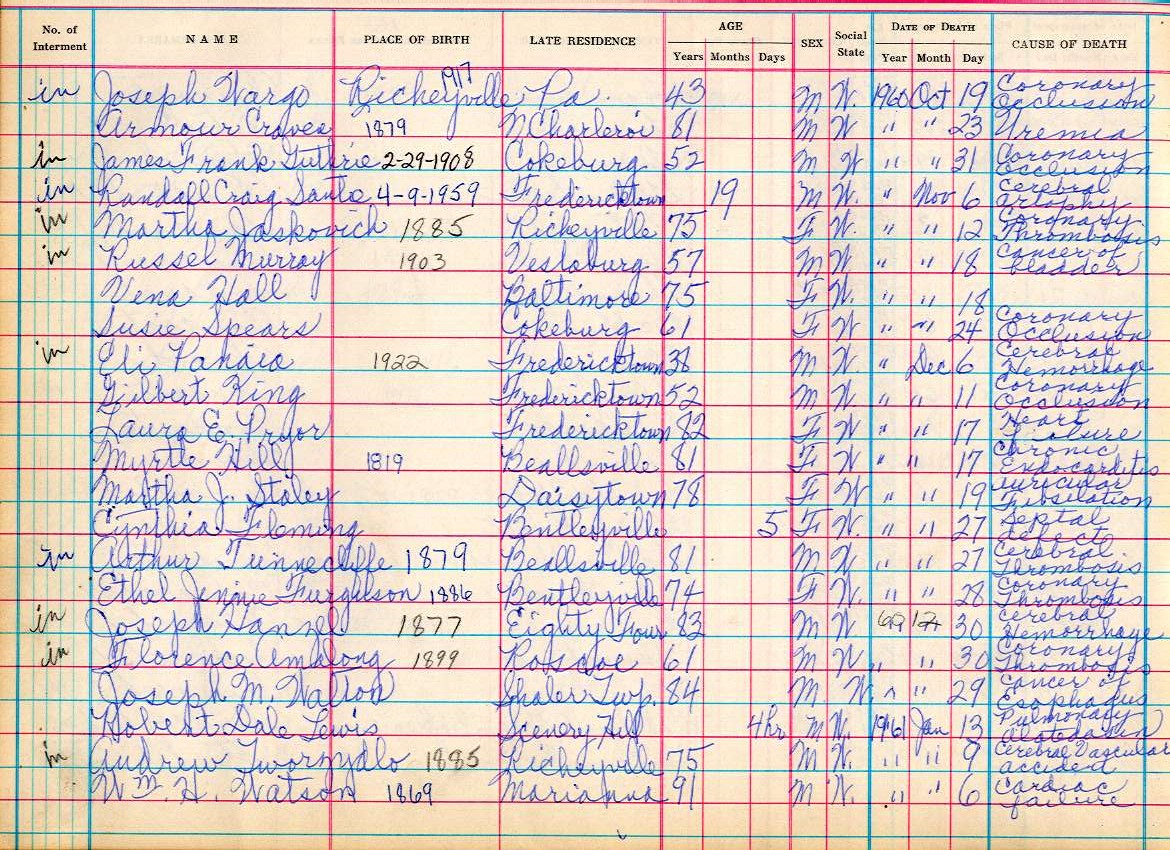 No. of Interment NAME PLACE OF BIRTH LATE RESIDENCE AGE Years Months Days SEX Social State DATE OF DEATH Year Month Day CAUSE OF DEATH
in Joseph Vargo Richeyville, Pa. 1917 43 M W. 1960 Oct 19 Coronary Occlusion
Armour Craven 1879 N Charleroi 81 M W " " 23 Uremia
in James Frank Guthrie 2-29-1908 Cokeburg 52 M W " " 31 Coronary Occlusion
in Randall Craig Santo 4-9-1959 Fredericktown 19 M W. " Nov 6 Cerebral
in Martha Jaskovich 1885 Richeyville 75 F W. " " 12 Coronary Thrombosis
in Russel Murray 1903 Vestaburg 57 M W " " 18 Cancer of bladder
Vena Hall Baltimore 75 F W. " " 18
Susie Spears Cokeburg 61 F W " " 24 Coronary Occlusion
in Eli 1922 Fredericktown 38 M W. " Dec 6 Cerebral Hemorrhage
Gilbert King Fredericktown 52 M W. " " 11 Coronary Occlusion
Laura E. Pryor Fredericktown 82 F W " " 17 Heart
Myrtle Hill 1819 Beallsville 81 F W " " 17 Chronic Endocarditis
Martha J. Staley Daisytown 78 F W " " 19 Auricular
Cynthia Fleming Bentleyville 5 F W. " " 27 Septal defect
in Arthur Tunnecliffe 1879 Beallsville 81 M W. " " 27 Cerebral Thrombosis
Ethel Jennie Furgulson 1886 Bentleyville 74 F W. " " 28 Coronary Thrombosis
in Joseph Hanzel 1877 Eighty Four 83 M W. 60 12 30 Cerebral Hemorrhage
in Florence Amalong 1899 Roscoe 61 M W " " 30 Coronary Thrombosis
Joseph M. Walton Shaler Twp. 84 M W " " 29 Cancer of Esophagus
Robert Dale Lewis Scenery Hill 4hr M W. 1961 Jan 13 Pulmonary
in Andrew Twormydlo 1885 Richeyville 75 M W. " " 9 Cerebral Vascular accident
Wm. H. Watson 1869 Marianna 91 M W. " " 6 Cardiac failure